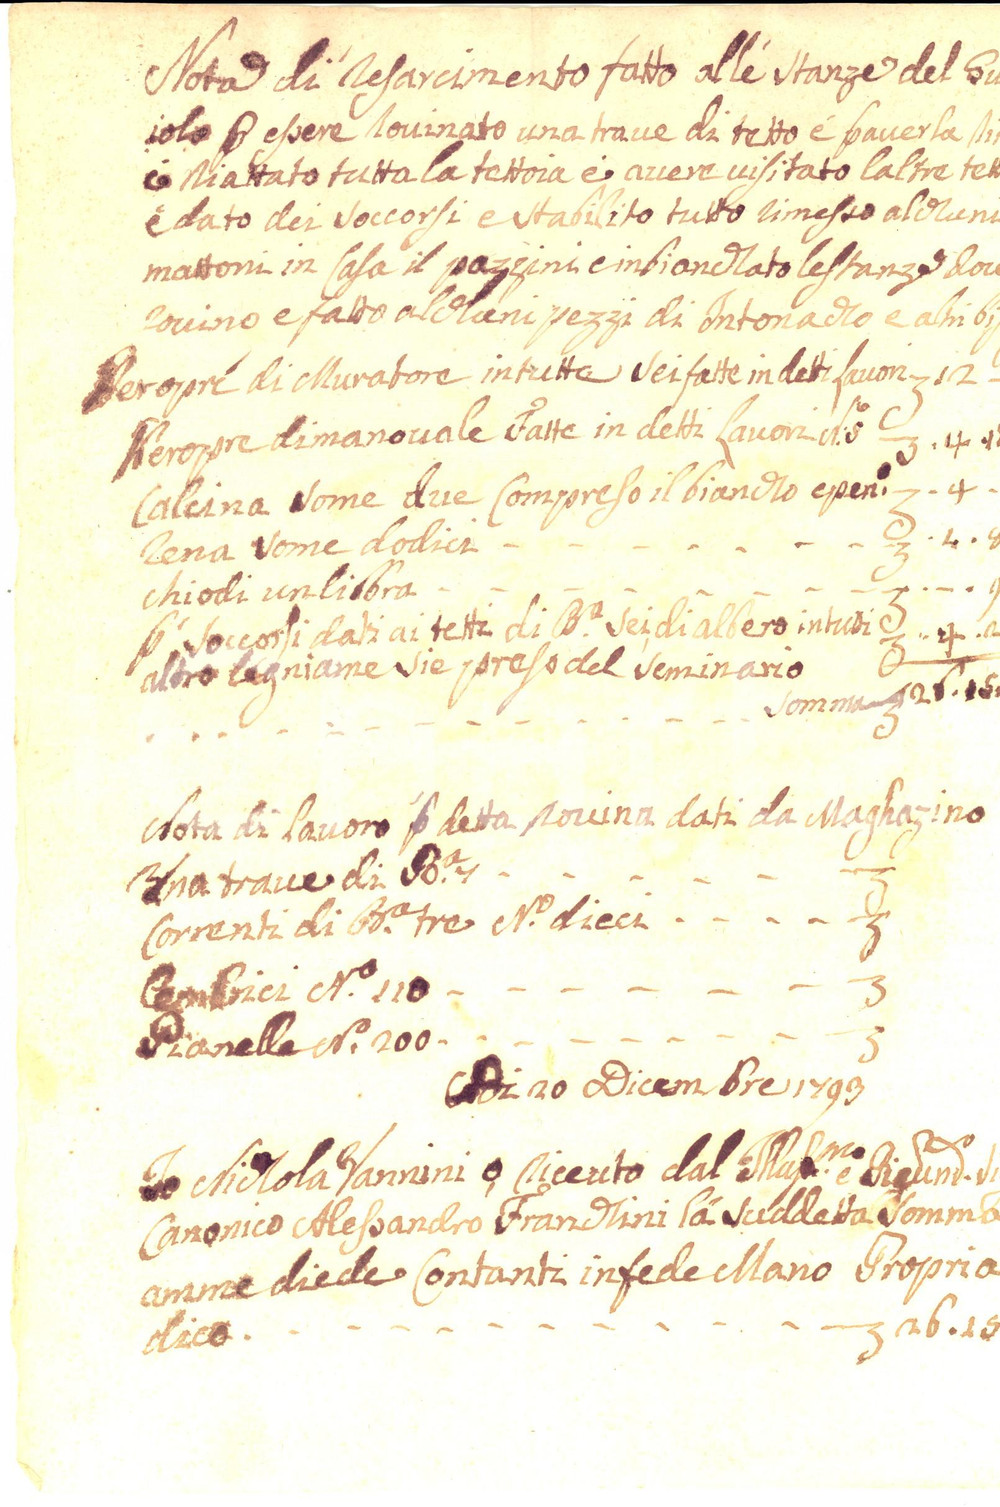 Nota di Resarcimento fatto alle stanze del
iolo p essere Rovinato una trave di tetto é paverla
é Riattato tutta la tettoia é avere visitato laltre tett
é dato dei soccorsi e stabilito tutto rimesso alchuni
mattoni in Casa il pazzini e inbianchato le stanze dov
rovino e fatto alchuni pezzi di Intonacho e altri
Per opré di Muratore in tutte sei fatte in detti Lavori 12
Per opre di manovale Fatte in detti Lavori N.º 5 4
Calcina some due Compreso il biancho e pen. - 4 -
Rena some dodici - - - - - - -
chiodi un libbra - - - - - - -
p soccorsi dati ai tetti di B.ª sei di albero in tutti 4
altro legniame sie preso del seminario
somma 26.15
Nota di lavoro p detta Rovina dati da Maghazino
Una trave di B.ª 7 - - - - - -
Correnti di B.ª tre N.º dieci - - - -
Cembrici N.º 110 - - - - - -
Pianelle N.º 200 - - - - - - -
Adi 20 Dicembre 1793
Io Nichola Vannini ó riceuto dal Illus.mo e
Canonico Alessandro Franchini la suddetta somma
amme diede Contanti in fede Mano Propria
dico - - - - - - - - 26.15